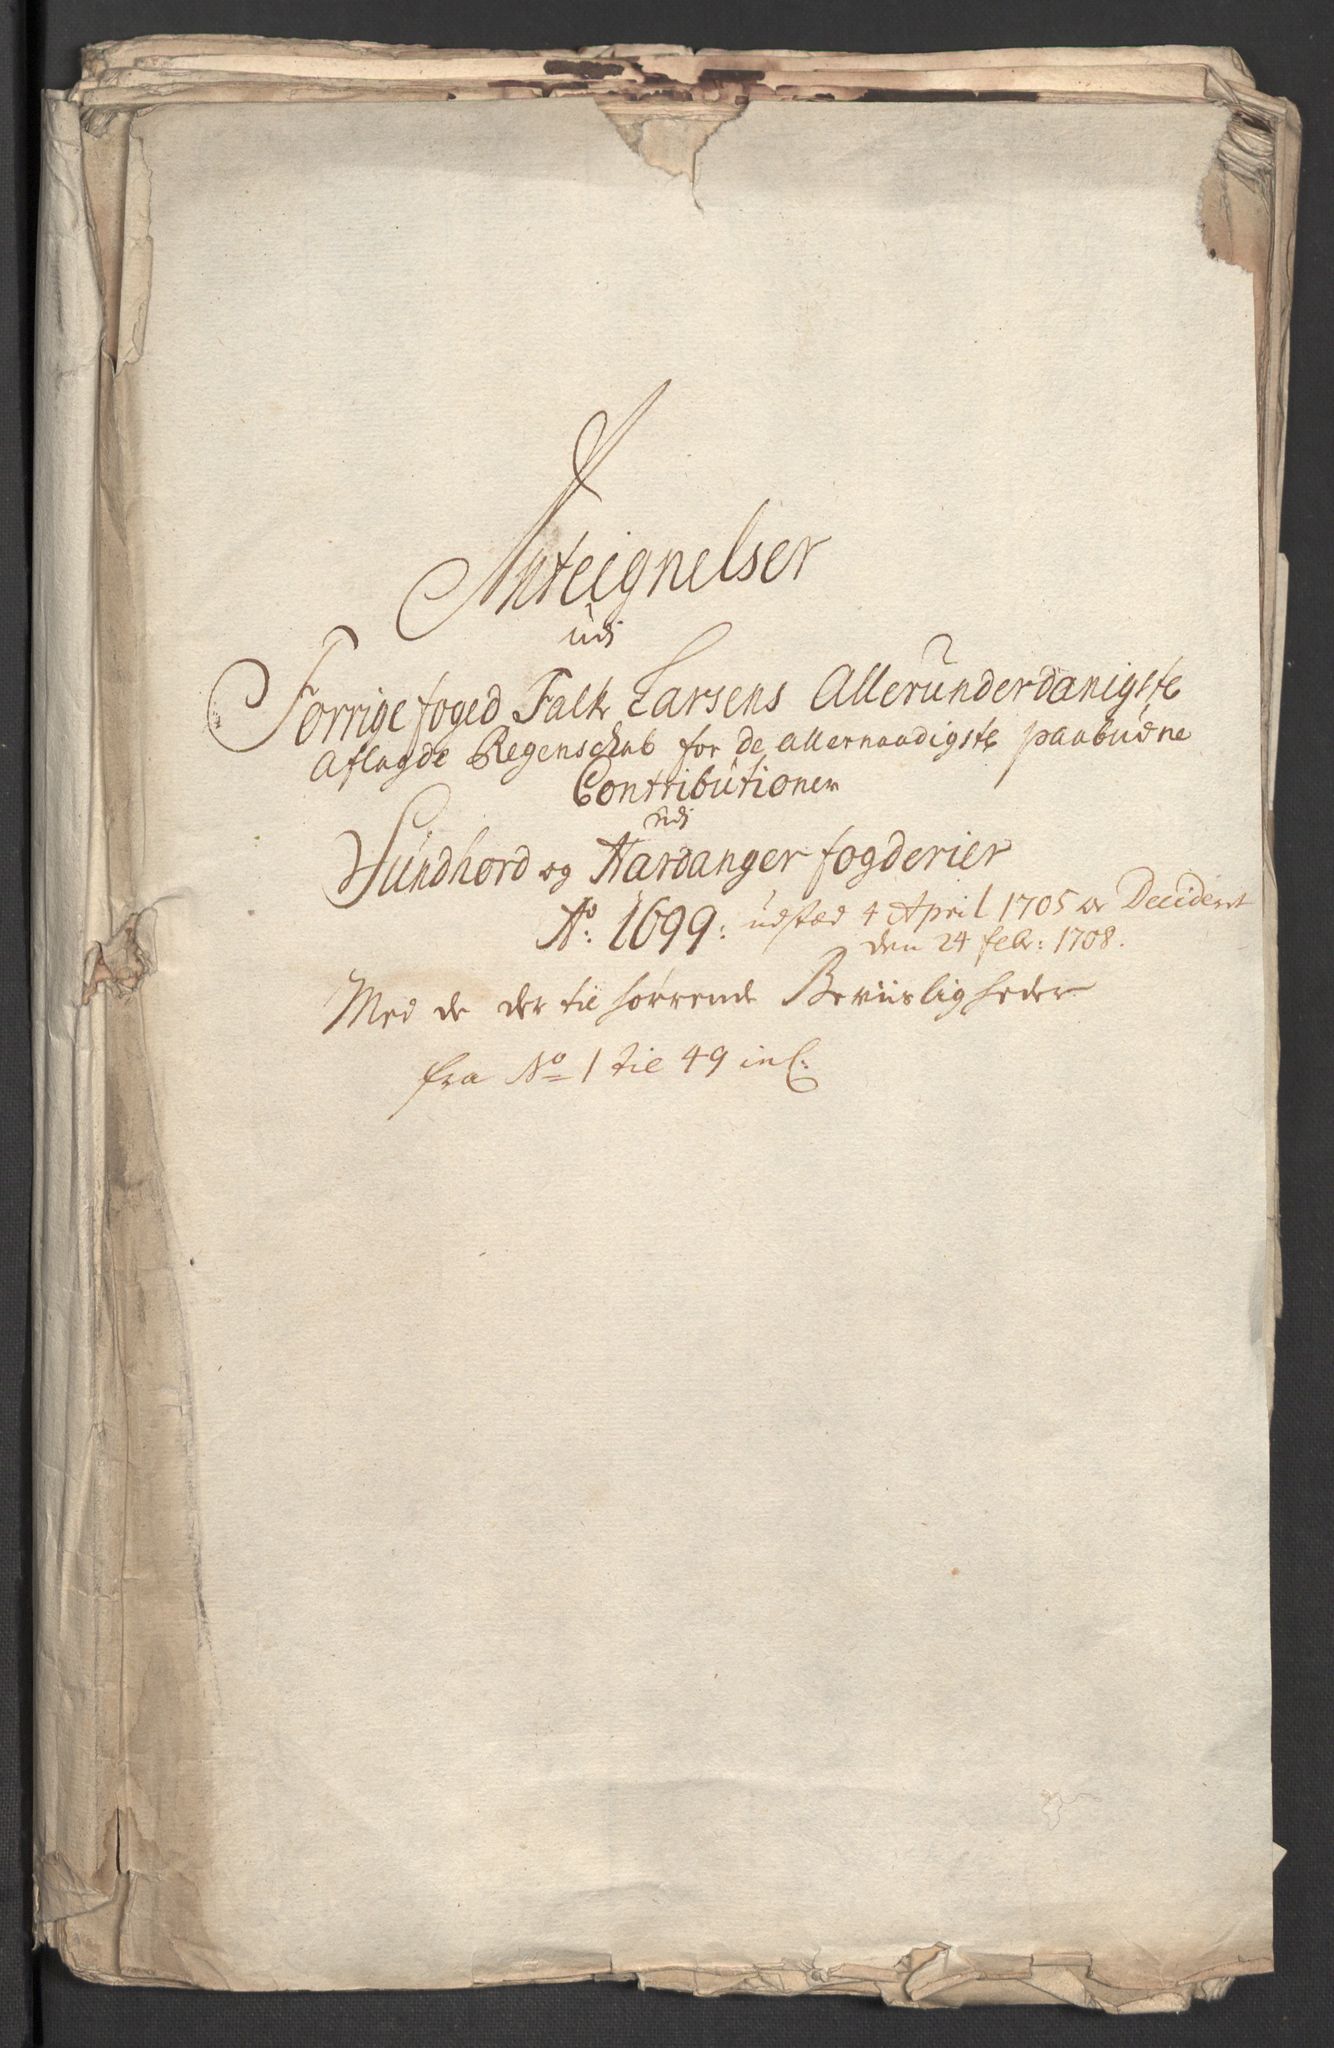 Anteignelser
udi
Forrige foged Falk Larsens Allerunderdanigste
aflagde Regenschab for de allernaadigste paabudne
Contributioner
udi
Sundhord og Hardanger fogderier
Aº: 1699: udsted 4 April 1705 og Decideret
den 24 febr: 1708.
Med de der til hørrende Beviisligheder
fra Nº 1 til 49 incl: